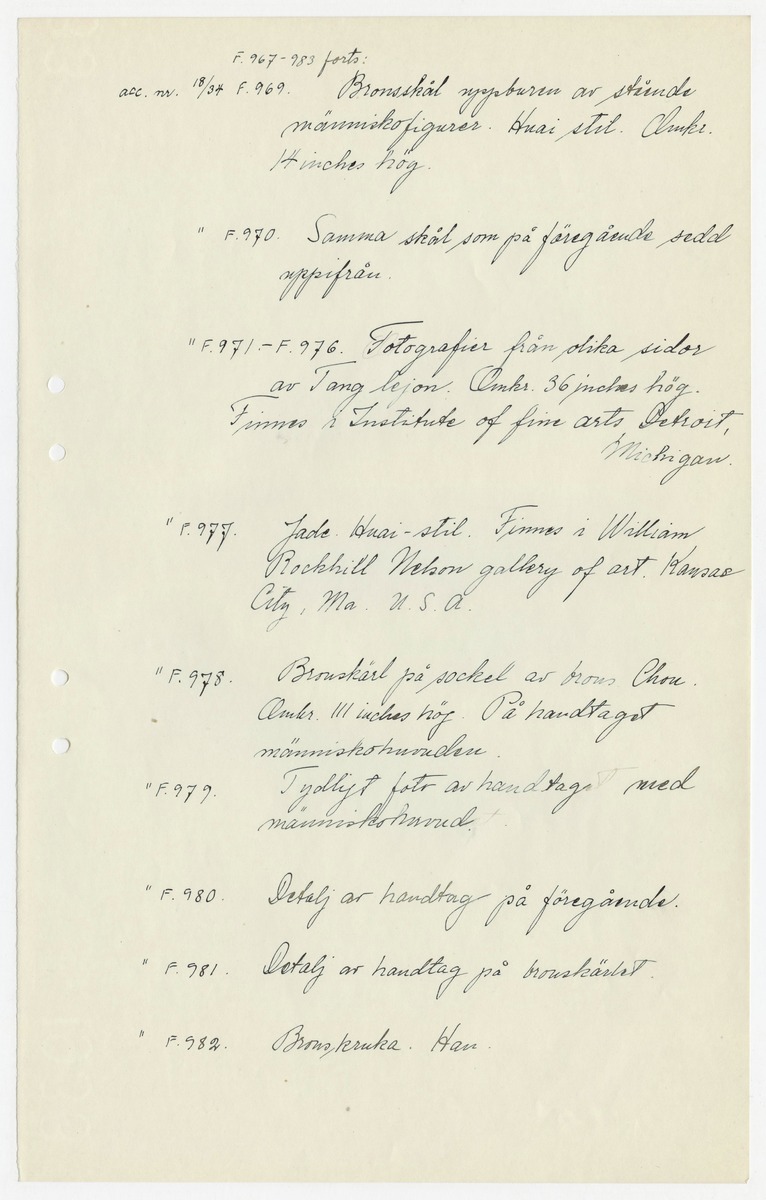 F. 967-983 forts:
acc. nr. 18/34 F. 969. Bronsskål uppburen av stående
människofigurer. Huai stil. Omkr.
14 inches hög.
" F. 970. Samma skål som på föregående sedd
uppifrån.
" F. 971.-F. 976. Fotografier från olika sidor
av Tang lejon. Omkr. 36 inches hög.
Finnes i Institute of fine arts Detroit,
Michigan.
" F. 977. Jade. Huai-stil. Finnes i William
Rockhill Nelson gallery of art. Kansas
City, Ma. U.S.A.
" F. 978. Bronskärl på sockel av brons Chou.
Omkr. 111 inches hög. På handtaget
människohuvuden.
" F. 979. Tydligt foto av handtaget med
människohuvud.
" F. 980. Detalj av handtag på föregående.
" F. 981. Detalj av handtag på bronskärlet.
" F. 982. Bronskruka. Han.